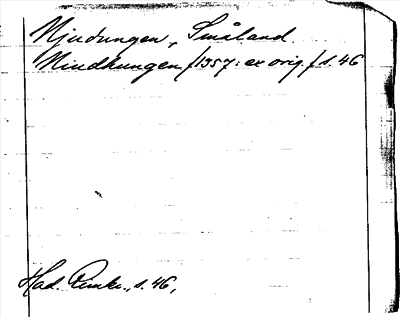 Njudungen, Småland.
Niudhungen /1357: ex orig./ s. 46
Had. Dimkr., s. 46,